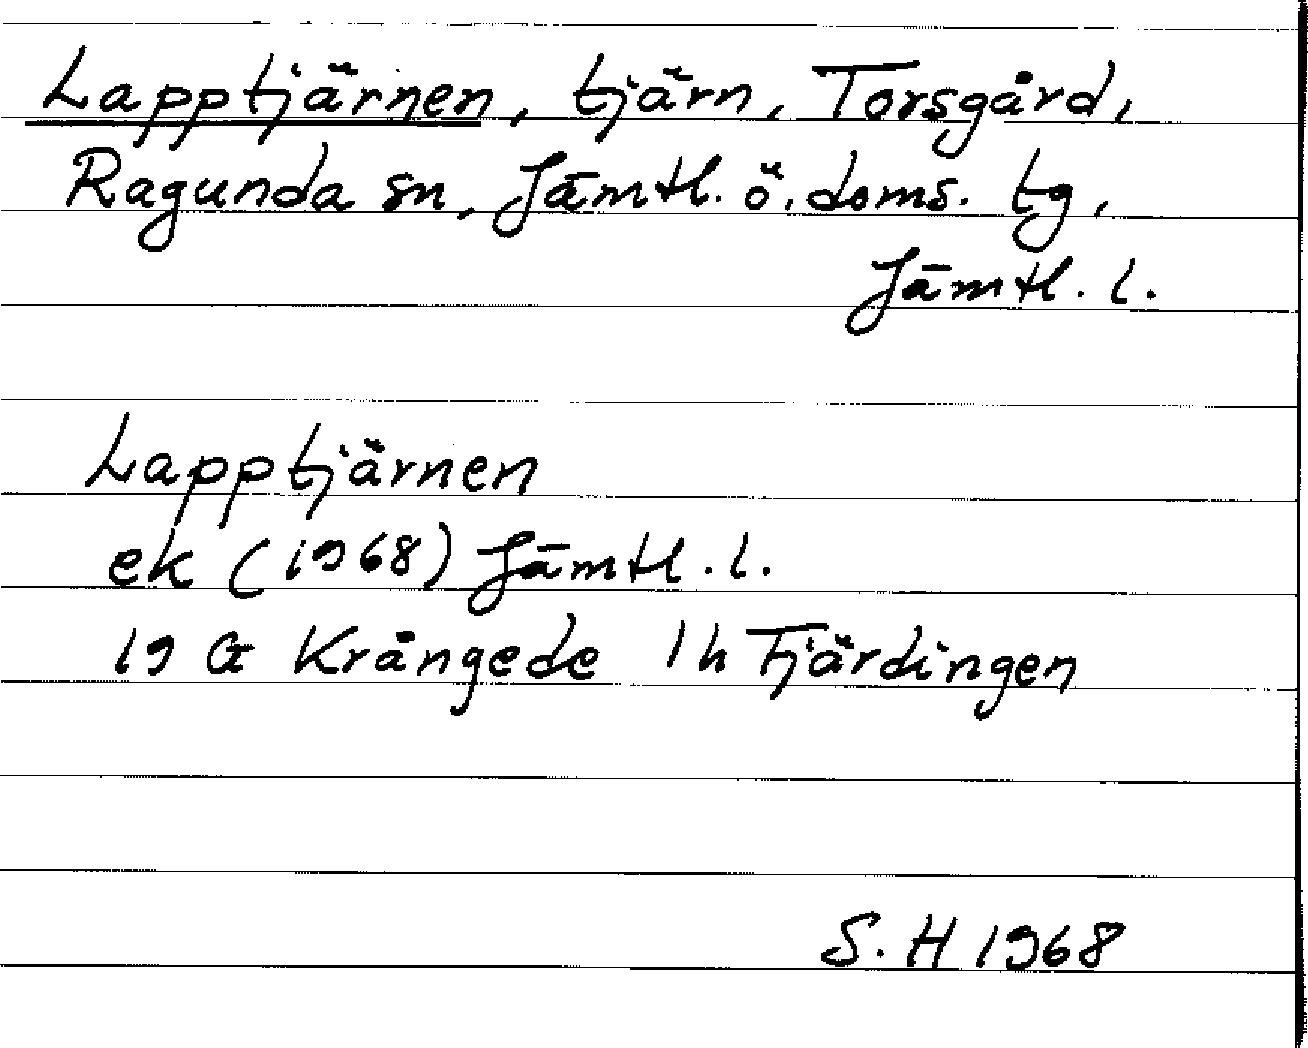 Lapptjärnen, tjärn, Torsgård,
Ragunda sn, Jämtl. ö. doms. tg,
Jämtl. l.
Lapptjärnen
ek (1968) Jämtl. l.
19 G Krångede 1 h Fjärdingen
S. H 1968